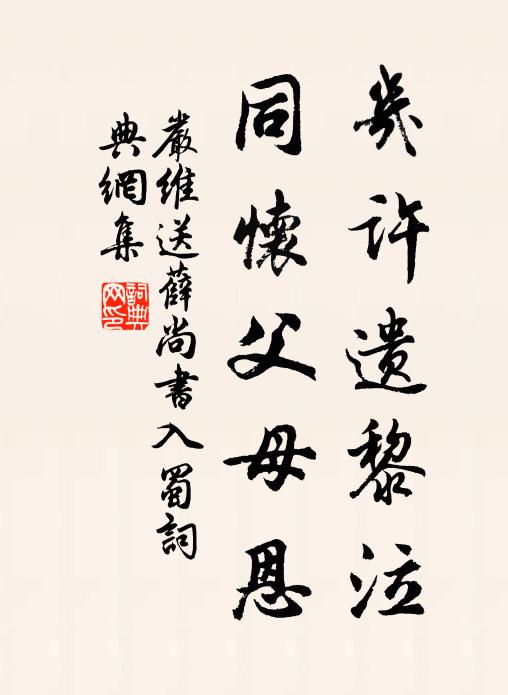 幾許遺黎泣
同懷父母恩
嚴維送薛尚書入蜀詞
典網集
詞典网印